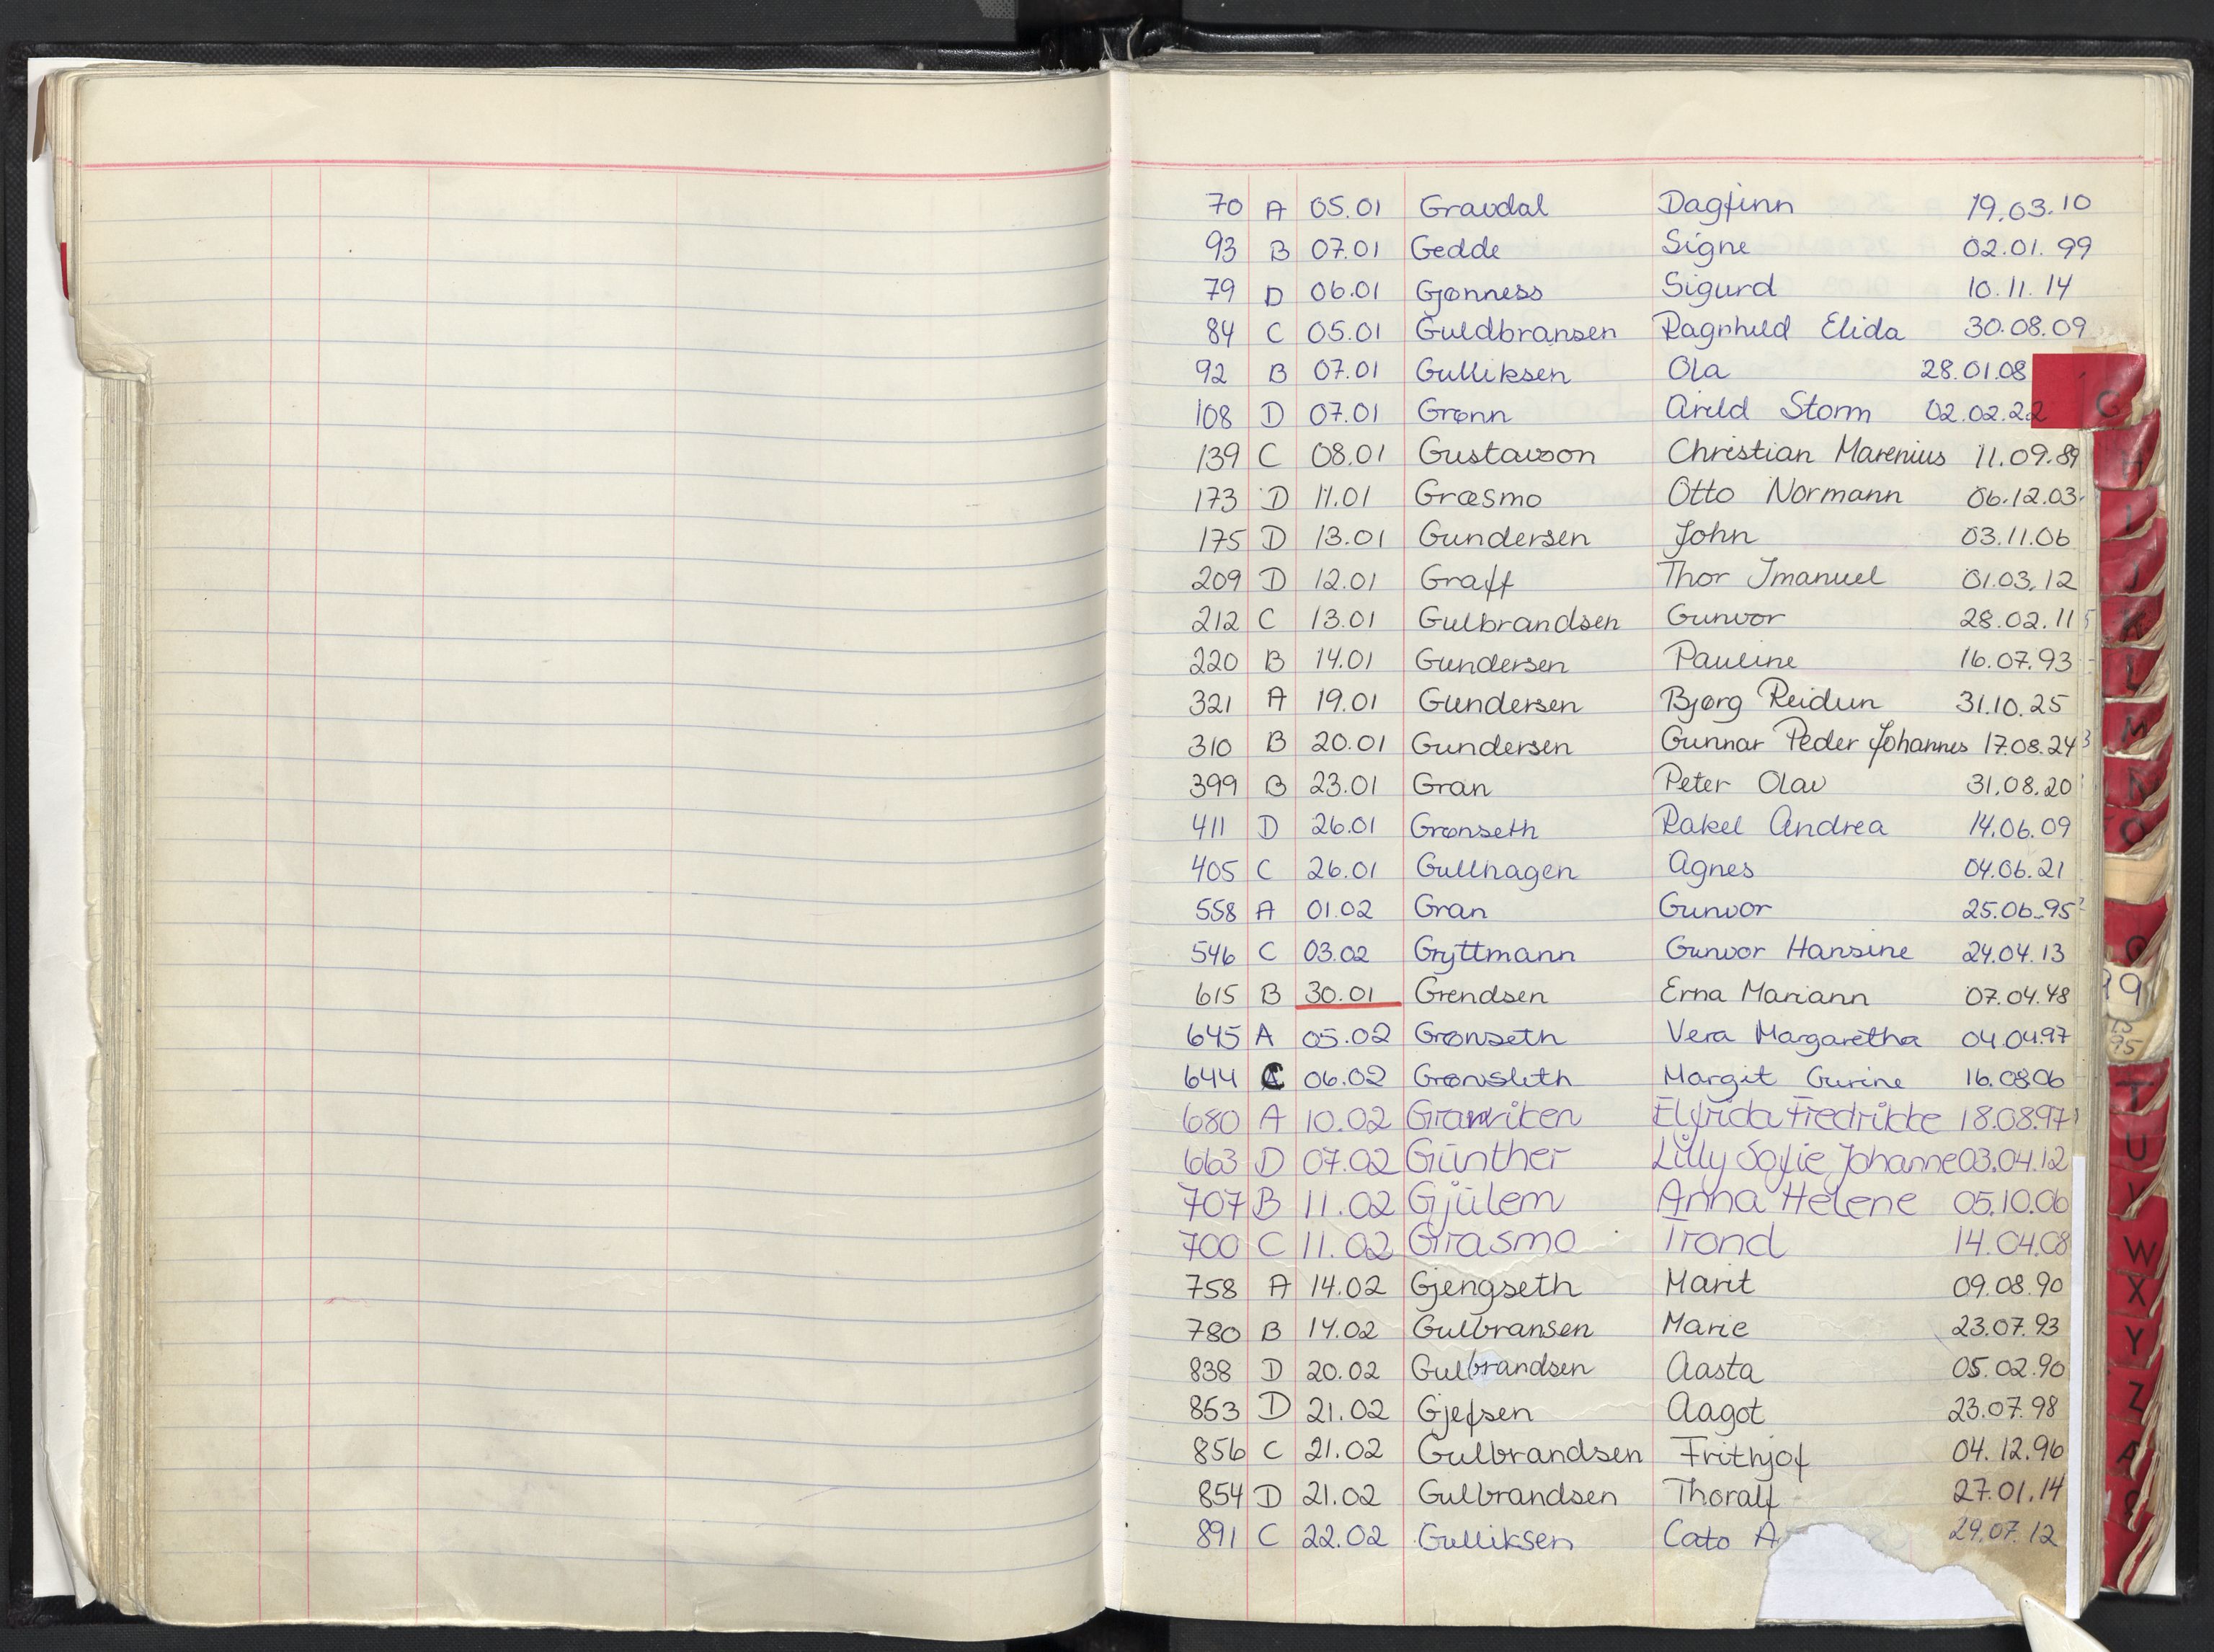 70 A 05.01 Gravdal Dagfinn 19.03.10
93 B 07.01 Gedde Signe 02.01.99
79 D 06.01 Gjønness Sigurd 10.11.14
84 C 05.01 Guldbransen Ragnhild Elida 30.08.09
92 B 07.01 Gulliksen Ola 28.01.08
108 D 07.01 Grønn Arild Storm 02.02.22
139 C 08.01 Gustavson Christian Marenius 11.09.89
173 D 11.01 Græsmo Otto Normann 06.12.03
175 D 13.01 Gundersen John 03.11.06
209 D 12.01 Graff Thor Imanuel 01.03.12
212 C 13.01 Gulbrandsen Gunvor 28.02.11
220 B 14.01 Gundersen Pauline 16.07.93
321 A 19.01 Gundersen Bjørg Reidun 31.10.25
310 B 20.01 Gundersen Gunnar Peder Johannes 17.08.24
399 B 23.01 Gran Peter Olav 31.08.20
411 D 26.01 Grønseth Rakel Andrea 14.06.09
405 C 26.01 Gullhagen Agnes 04.06.21
558 A 01.02 Gran Gunvor 25.06.95
546 C 03.02 Gryttmann Gunvor Hansine 24.04.13
615 B 30.01 Grendsen Erna Mariann 07.04.48
645 A 05.02 Grønseth Vera Margaretha 04.04.97
644 C 06.02 Grønsleth Margit Gurine 16.08.06
680 A 10.02 Elfrida Fredrikke 18.08.97
663 D 07.02 Günther Lilly Sofie Johanne 03.04.12
707 B 11.02 Gjülem Anna Helene 05.10.06
700 C 11.02 Grasmo Trond 14.04.08
758 A 14.02 Gjengseth Marit 09.08.90
780 B 14.02 Gulbransen Marie 23.07.93
838 D 20.02 Gulbrandsen Aasta 05.02.90
853 D 21.02 Gjefsen Aagot 23.07.98
856 C 21.02 Gulbrandsen Frithjof 04.12.96
854 D 21.02 Gulbrandsen Thoralf 27.01.14
891 C 22.02 Gulliksen Cato A 29.07.12
G
H
I
J
K
L
M
N
O
T
U
V
W
X
Y
Z